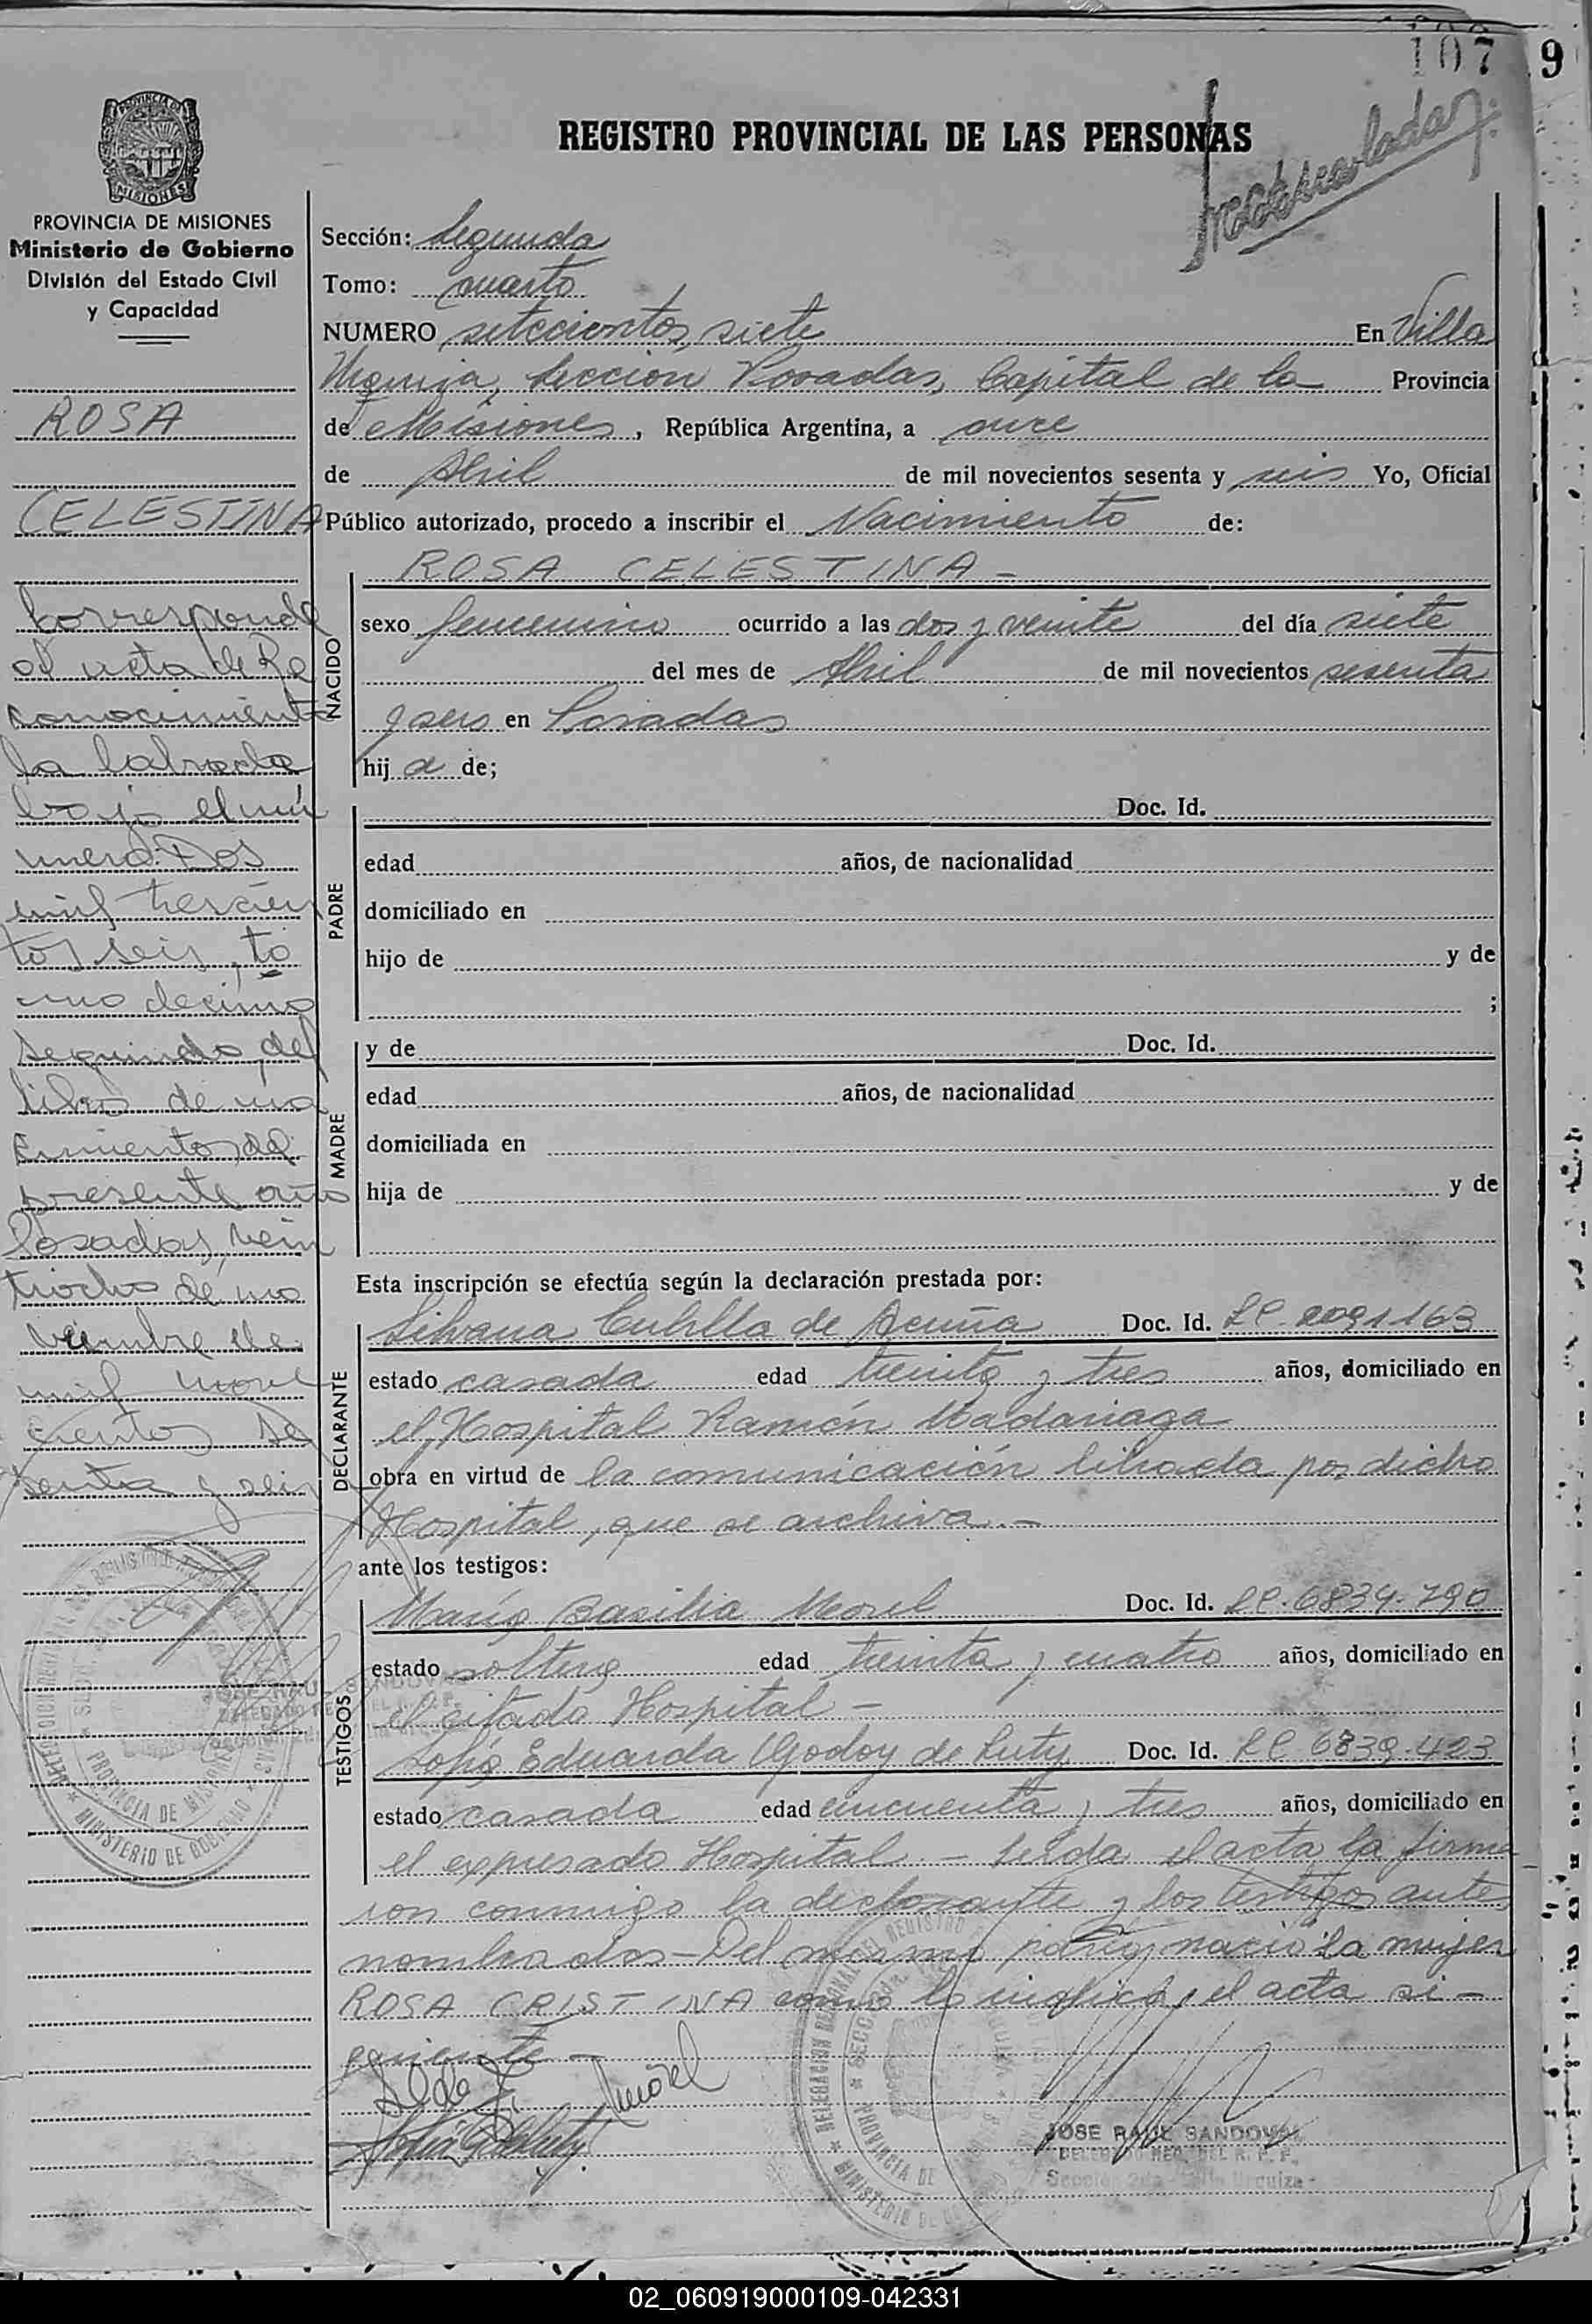 107 9
Inmatriculadas
REGISTRO PROVINCIAL DE LAS PERSONAS
PROVINCIA DE MISIONES
Ministerio de Gobierno
División del Estado Civil
y Capacidad
ROSA
CELESTINA
Corresponde
al acta de Re
conocimiento
la labrada
bajo el nú
mero: Dos
mil trescien
tos seis, to
mo decimo
segundo, del
libro de na
cimientos del
presente año
Posadas, vein
tiocho de no
viembre de
mil nove
cientos se
senta y seis
Sección: Segunda
Tomo: cuarto
NUMERO setecientos siete En Villa
Urquiza, Sección Posadas, Capital de la Provincia
de Misiones, República Argentina, a once
de Abril de mil novecientos sesenta y seis Yo, Oficial
Público autorizado, procedo a inscribir el Nacimiento de:
NACIDO
ROSA CELESTINA -
sexo femenino ocurrido a las dos y veinte del día siete
del mes de Abril de mil novecientos sesenta
y seis en Posadas
hij a de;
PADRE
Doc. Id.
edad años, de nacionalidad
domiciliado en
hijo de y de
;
MADRE
y de Doc. Id.
edad años, de nacionalidad
domiciliada en
hija de y de
Esta inscripción se efectúa según la declaración prestada por:
DECLARANTE
Silvana Cubilla de Acuña Doc. Id. LC. 2091163
estado casada edad treinta y tres años, domiciliado en
el Hospital Ramón Madariaga
obra en virtud de la comunicación librada por dicho
Hospital, que se archiva. -
ante los testigos:
TESTIGOS
María Basilia Morel Doc. Id. LC. 6839.790
estado soltera edad treinta y cuatro años, domiciliado en
el citado Hospital -
Sofía Eduarda Godoy de Luty Doc. Id. LC 6839.423
estado casada edad cincuenta y tres años, domiciliado en
el expresado Hospital. - Leída el acta la firma
ron conmigo la declarante y los testigos antes
nombrados - Del mismo parto, nació la mujer
ROSA CRISTINA como lo indica, el acta si -
guiente -
Morel
JOSE RAUL SANDOVAL
DELEGADO REG. DEL R. P. P.
Sección 2da - Villa Urquiza -
JOSE RAUL SANDOVAL
PROVINCIA DE MISIONES
MINISTERIO DE GOBIERNO
02_060919000109-042331